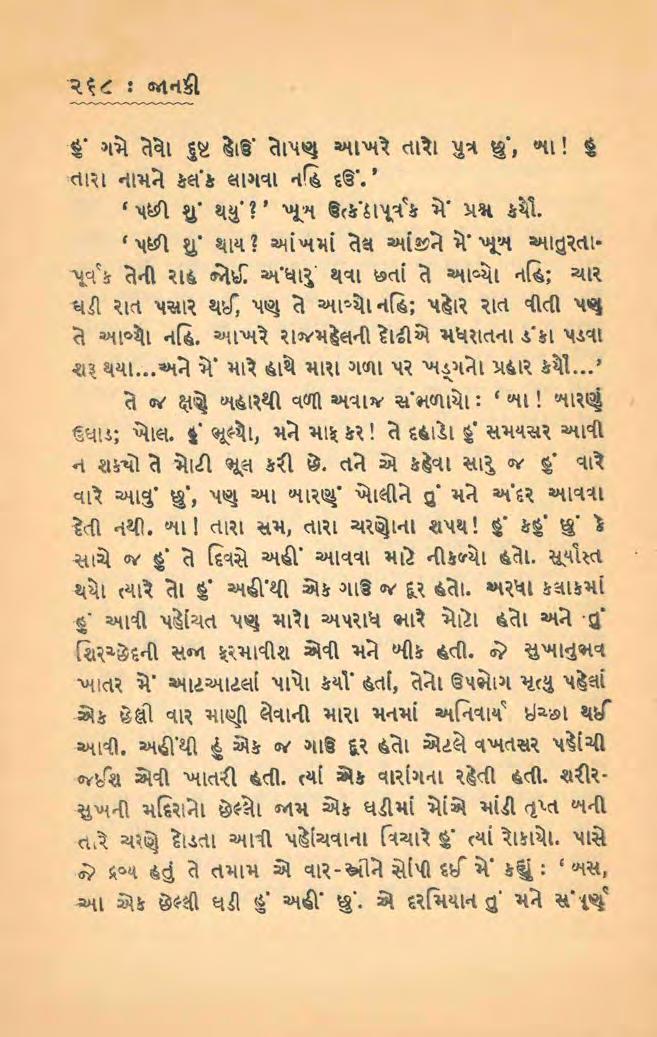 ૨૬૮ : જાનકી
હું ગમે તેવો દુષ્ટ હોઉં તોપણ આખરે તારો પુત્ર છું, બા! હું
તારા નામને કલંક લાગવા નહિ દઉં.’
‘પછી શું થયું?’ ખૂબ ઉત્કંઠાપૂર્વક મેં પ્રશ્ન કર્યો.
‘પછી શું થાય? આંખમાં તેલ આંજીને મેં ખૂબ આતુરતા-
પૂર્વક તેની રાહ જોઈ. અંધારું થવા છતાં તે આવ્યો નહિ; ચાર
ઘડી રાત પસાર થઈ, પણ તે આવ્યો નહિ; પહોર રાત વીતી પણ
તે આવ્યો નહિ. આખરે રાજમહેલની દોઢીએ મધરાતના ડંકા પડવા
શરૂ થયા...અને મેં મારે હાથે મારા ગળા પર ખડ્ગનો પ્રહાર કર્યો...’
તે જ ક્ષણે બહારથી વળી અવાજ સંભળાયો : ‘બા! બારણું
ઉઘાડ; ખોલ. હું ભૂલ્યો, મને માફ કર! તે દહાડો હું સમયસર આવી
ન શક્યો તે મોટી ભૂલ કરી છે. તને એ કહેવા સારુ જ હું વારે
વારે આવું છું, પણ આ બારણું ખોલીને તું મને અંદર આવવા
દેતી નથી. બા! તારા સમ, તારા ચરણોના શપથ! હું કહું છું કે
સાચે જ હું તે દિવસે અહીં આવવા માટે નીકળ્યો હતો. સૂર્યાસ્ત
થયો ત્યારે તો હું અહીંથી એક ગાઉ જ દૂર હતો. અરધા કલાકમાં
હું આવી પહોંચત પણ મારો અપરાધ ભારે મોટો હતો અને તું
શિરચ્છેદની સજા ફરમાવીશ એવી મને બીક હતી. જે સુખાનુભવ
ખાતર મેં આટઆટલાં પાપો કર્યાં હતાં, તેનો ઉપભોગ મૃત્યુ પહેલાં
એક છેલ્લી વાર માણી લેવાની મારા મનમાં અનિવાર્ય ઇચ્છા થઈ
આવી. અહીંથી હું એક જ ગાઉ દૂર હતો એટલે વખતસર પહોંચી
જઈશ એવી ખાતરી હતી. ત્યાં એક વારાંગના રહેતી હતી. શરીર-
સુખની મદિરાનો છેલ્લો જામ એક ઘડીમાં મોંએ માંડી તૃપ્ત બની
તારે ચરણે દોડતા આવી પહોંચવાના વિચારે હું ત્યાં રોકાયો. પાસે
જે દ્રવ્ય હતું તે તમામ એ વાર-સ્ત્રીને સોંપી દઈ મેં કહ્યું : ‘બસ,
આ એક છેલ્લી ઘડી હું અહીં છું. એ દરમિયાન તું મને સંપૂર્ણ